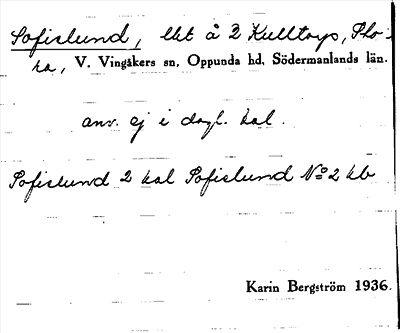 Sofielund, lht å 2 Kulltorps, Sko-
ka, V. Vingåkers sn, Oppunda hd, Södermanlands län.
anv. ej i dagl. tal.
Sofielund 2 kal Sofielund No 2 kb
Karin Bergström 1936.